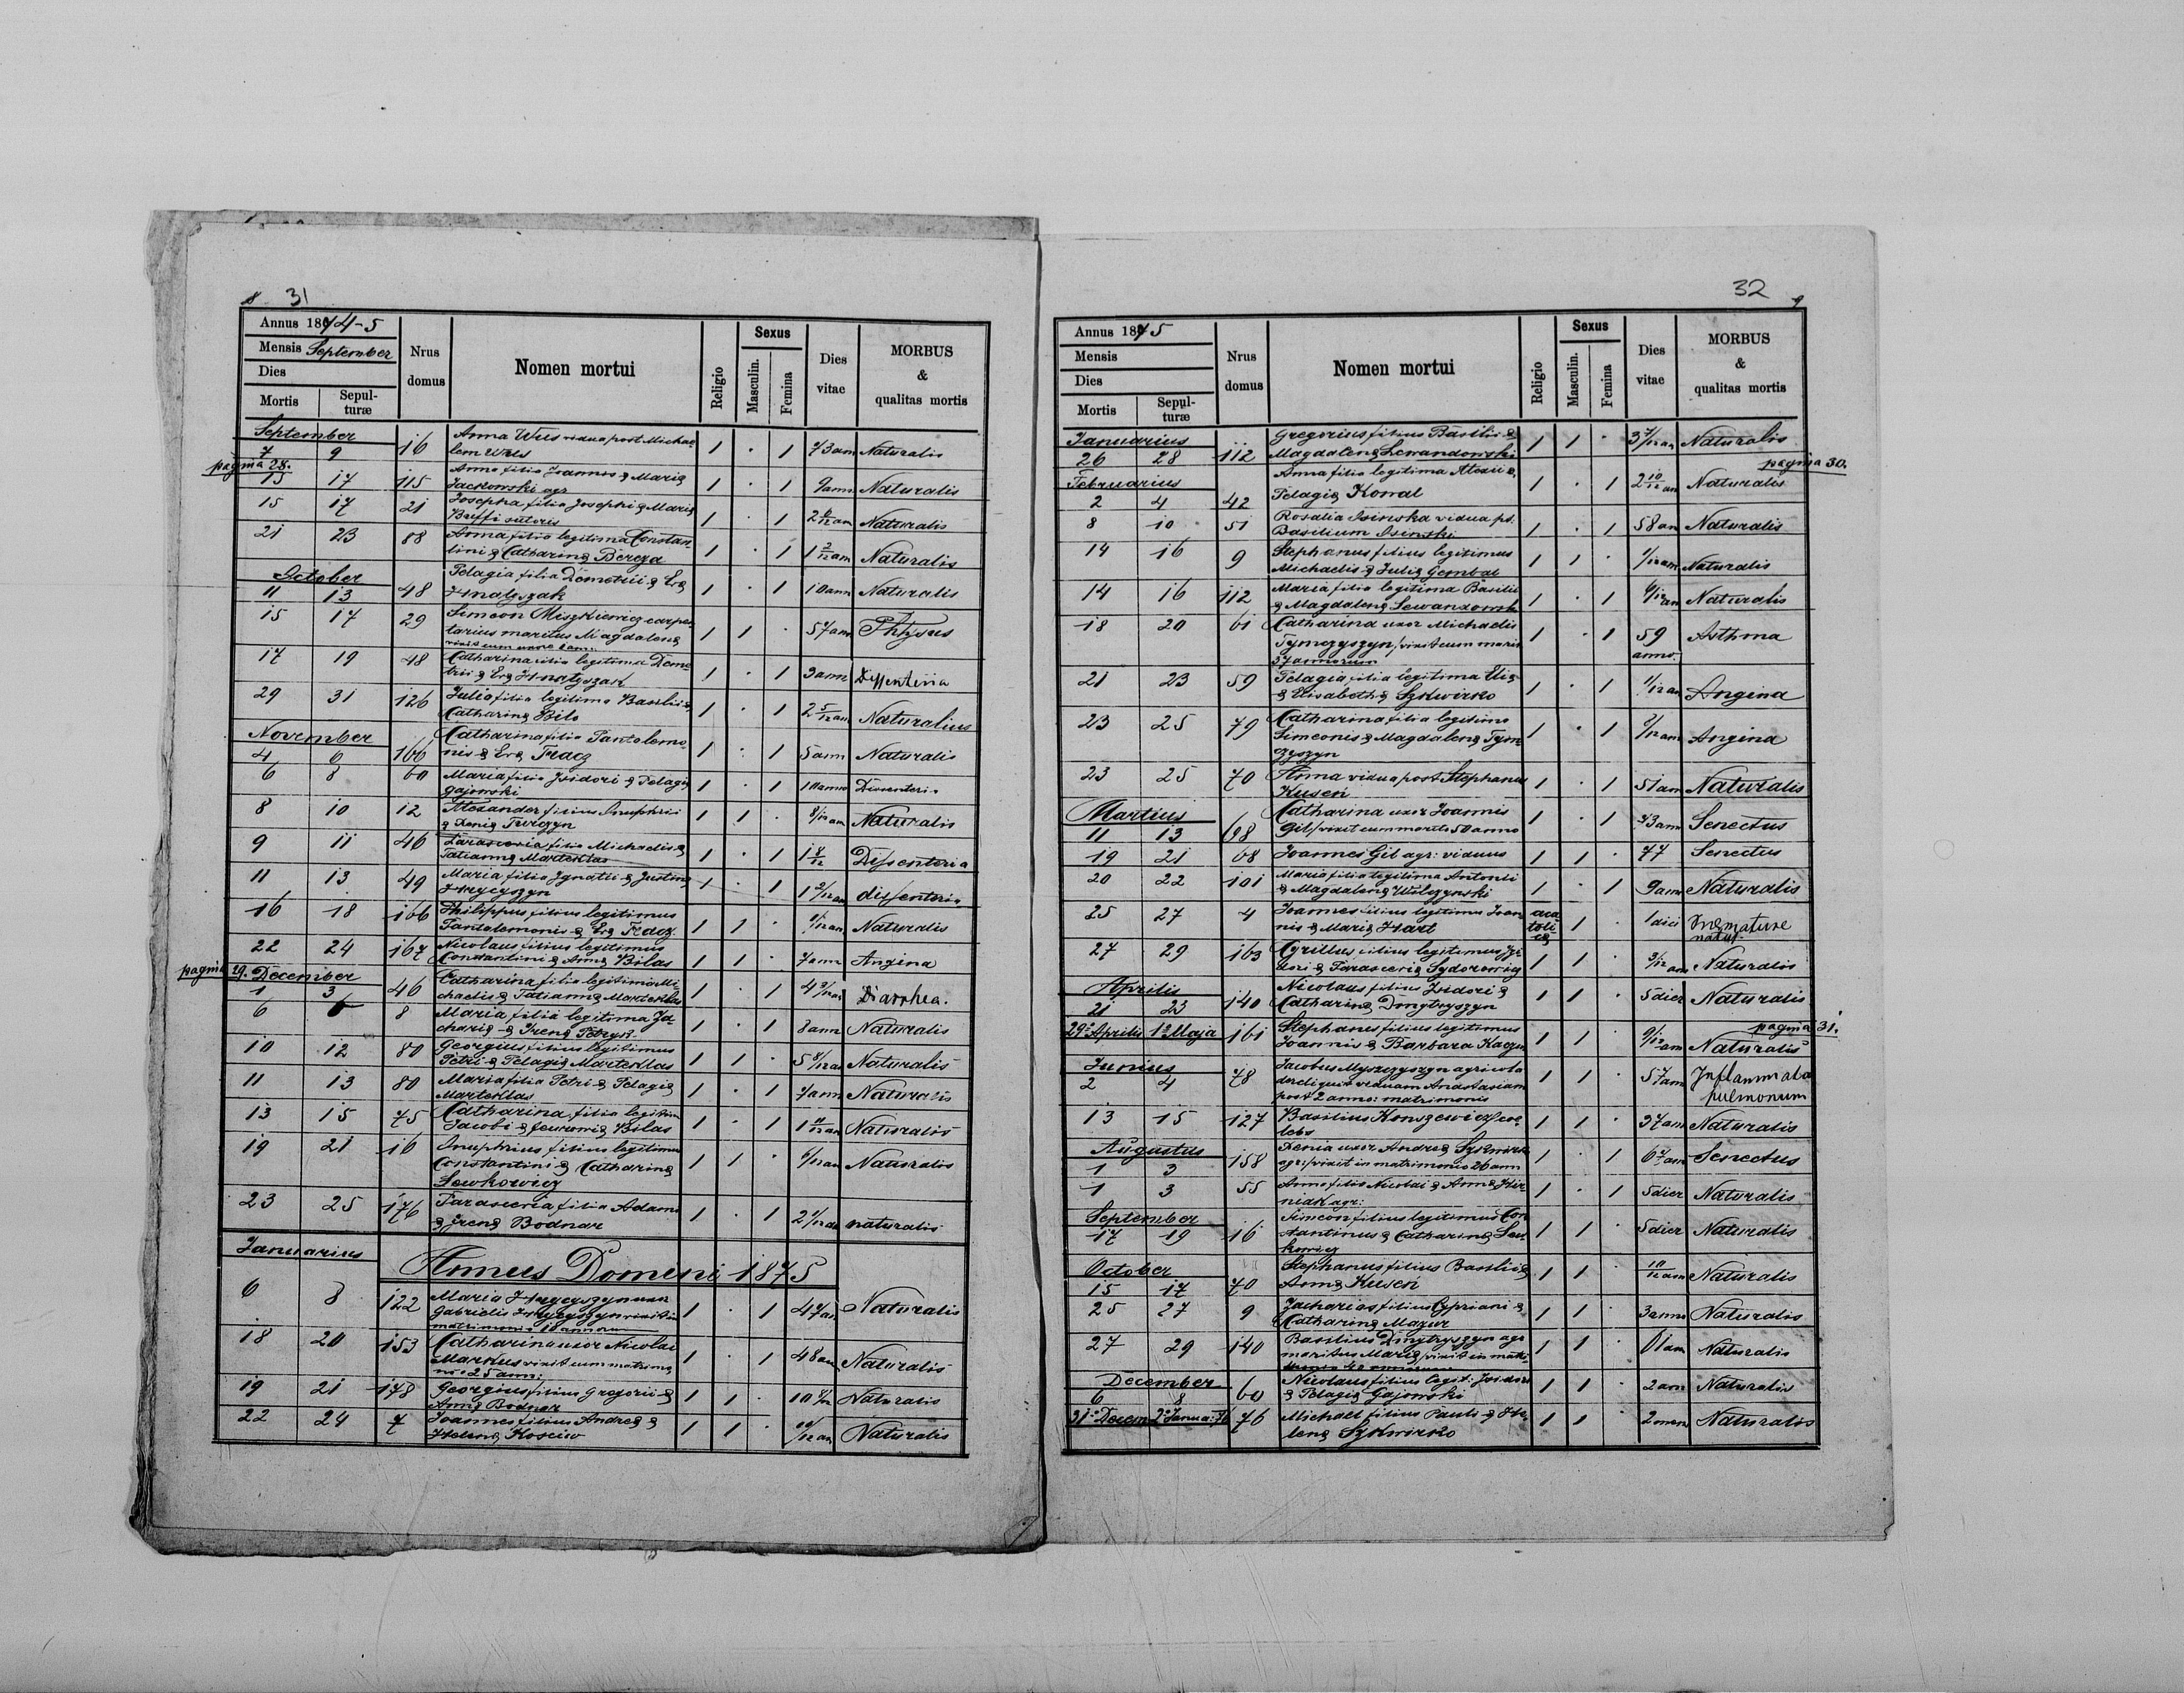 8 31
Annus 1874-5
Mensis September
Dies
Mortis Sepulturæ
Nrus domus
Nomen mortui
Religio
Sexus
Masculin. Femina
Dies vitae
MORBUS
&
qualitas mortis
September
7 9 16 Anna Wus vidua post Michae
lem Wus 1 . 1 73 am Naturalis
pagina 28.
15 17 115 Anna filia Joannis & Maria
Jackowski agr 1 . 1 9 ann Naturalis
15 17 21 Josepha filia Josephi & Maria
Buffi sutoris 1 . 1 Naturalis
21 23 88 Anna filia legitima Constan
tini & Catharina Berega 1 . 1 Naturalis
October
11 13 48 Pelagia filia Demetrii & Eva
Hnatyszak 1 . 1 10 ann Naturalis
15 17 29 Simeon Miszkiewicz carpen
tarius maritus Magdalena 1 1 . 57 am Phtysus
17 19 48 Catharina filia legitima Deme
trii & Eva Hnatyszak 1 . 1 3 ann Dyssenteria
29 31 126 Julia filia legitima Basilii &
Catharina Bilo 1 . 1 2 5/12 am Naturalius
November
4 6 166 Catharina filia Pantelemo
nis & Eva Tkacz 1 . 1 5 ann Naturalis
6 8 60 Maria filia Isidori & Pelagia
Gajowski 1 . 1 10 anno Dissenteri
8 10 12 Alexander filius Onuphrii
& Xenia Turczyn 1 1 . 8/12 am Naturalis
9 11 46 Parascevia filia Michaelis &
Tatianna Martenllas 1 . 1 1 8/12 Dissenteria
11 13 49 Maria filia Ignatii & Justina
Hrycyszyn 1 . 1 dissenteria
16 18 166 Philippus filius legitimus
Pantelemonis & Eva Tkacz 1 1 . Naturalis
22 24 167 Nicolaus filius legitimus
Constantini & Anna Bilas 1 1 . 7 ann Angina
pagina 29. December
1 3 46 Catharina filia legitima Mi
chaelis & Tatianna Martenllas 1 . 1 Diarrhea.
6 8 Maria filia legitima Za
charia & Irena Petryn 1 . 1 8 ann Naturalis
10 12 80 Georgius filius legitimus
Petri & Pelagia Martenllas 1 1 . Naturalis
11 13 80 Maria filia Petri & Pelagia
Martenllas 1 . 1 7 ann Naturalis
13 15 75 Catharina filia legitim
Jacobi & Bilas 1 . 1 1 11/12 an Naturalis
19 21 16 Onuphrius filius legitimus
Constantini & Catharina
Lewkowicz 1 1 . 6/12 an Naturalis
23 25 176 Parascevia filia Adami
& Irena Bodnar 1 . 1 naturalis
Januarius
Annus Domini 1875
6 8 122 Maria Hrycyszyn uxor
Gabrielis Hrycyszyn vixit in
matrimonio 18 annor 1 . 1 47 an Naturalis
18 20 153 Catharina uxor Nicolai
Markus vixit cum matrimo
nio 25 ann: 1 . 1 48 an Naturalis
19 21 178 Georgius filius Gregorii &
Anna Bodnar 1 1 . Naturalis
22 24 7 Joannes filius Andrea &
Helena Kosciw 1 1 . Naturalis
32 9
Annus 1875
Mensis
Dies
Mortis Sepulturæ
Nrus domus
Nomen mortui
Religio
Sexus
Masculin. Femina
Dies vitae
MORBUS
&
qualitas mortis
Januarius
26 28 112 Gregorius filius Basilii &
Magdalena Lewandowski 1 1 . 3 7/12 an Naturalis
pagina 30.
Februarius
2 4 42 Anna filia legitima Alexii &
Pelagia Kowal 1 . 1 2 10/12 an Naturalis
8 10 51 Rosalia Isinska vidua pt.
Basilium Isinski 1 . 1 58 an Naturalis
14 16 9 Stephanus filius legitimus
Michaelis & Julia Gembal 1 1 . 1/12 am Naturalis
14 16 112 Maria filia legitima Basilii
& Magdalena Lewandowsk 1 . 1 Naturalis
18 20 61 Catharina uxor Michaelis
Tymczyszyn/vixit cum marit
37 annorum 1 . 1 59 anno. Asthma
21 23 59 Pelagia filia legitima Elia
& Elisabetha Szkwirko 1 . 1 1/12 an Angina
23 25 79 Catharina filia legitima
Simeonis & Magdalena Tym
czyszyn 1 . 1 Angina
23 25 70 Anna vidua post Stephanu
Kuseń 1 . 1 51 am Naturalis
Martius
11 13 68 Catharina uxor Joannis
Gil/vixit cum marito 50 anno 1 . 1 73 ann Senectus
19 21 68 Joannes Gil agr: viduus 1 1 . 77 Senectus
20 22 101 Maria filia legitima Antonii
& Magdalena Wilczynski 1 . 1 9 ann Naturalis
25 27 4 Joannes filius legitimus Joan
nis & Maria Hart aca toli ca 1 . 1 diei Præmature
natus
27 29 163 Cyrillus filius legitimus Isi
dori & Parascevia Sydorowicz 1 1 . 3/12 am Naturalis
Aprilis
21 23 140 Nicolaus filius Isidori &
Catharina Dmytryszyn 1 1 . 5 dier Naturalis
pagina 31.
29 Aprilis 1 Maja 161 Stephanus filius legitimus
Joannis & Barbara 1 1 . 9/12 am Naturalis
Junius
2 4 78 Jacobus Myszczyszyn agricola
dereliquit viduam Anastasiam
post 2 anno: matrimonii 1 1 . 57 am Inflammatio
pulmonum
13 15 127 Basilius Konszewicz/coe
lebs 1 1 . 37 am Naturalis
Augustus
1 3 158 Xenia uxor Andrea Szkwirk
agr:/vixit in matrimonio 26 ann 1 . 1 Senectus
1 3 55 Anna filia Nicolai & Anna Hir
niak agr: 1 . 1 5 dier Naturalis
September
17 19 16 Simeon filius legitimus Con
stantinus & Catharina Lew
kowicz 1 1 . 5 dier Naturalis
October
15 17 70 Stephanus filius Basilii &
Anna Kuseń 1 1 . 10/12 am Naturalis
25 27 9 Zacharias filius Cypriani &
Catharina Mazur 1 1 . 3 anno Naturalis
27 29 140 Basilius Dmytryszyn agr
maritus Maria/vixit in matri
monio 40 annorum 1 1 . 61 am Naturalis
December
6 8 60 Nicolaus filius legit: Isidori
& Pelagia Gajowski 1 1 . 2 am Naturalis
31 Decem 2 Janua: 76 76 Michael filius Pauli & He
lena Szkwirko 1 1 . 2 men Naturalis